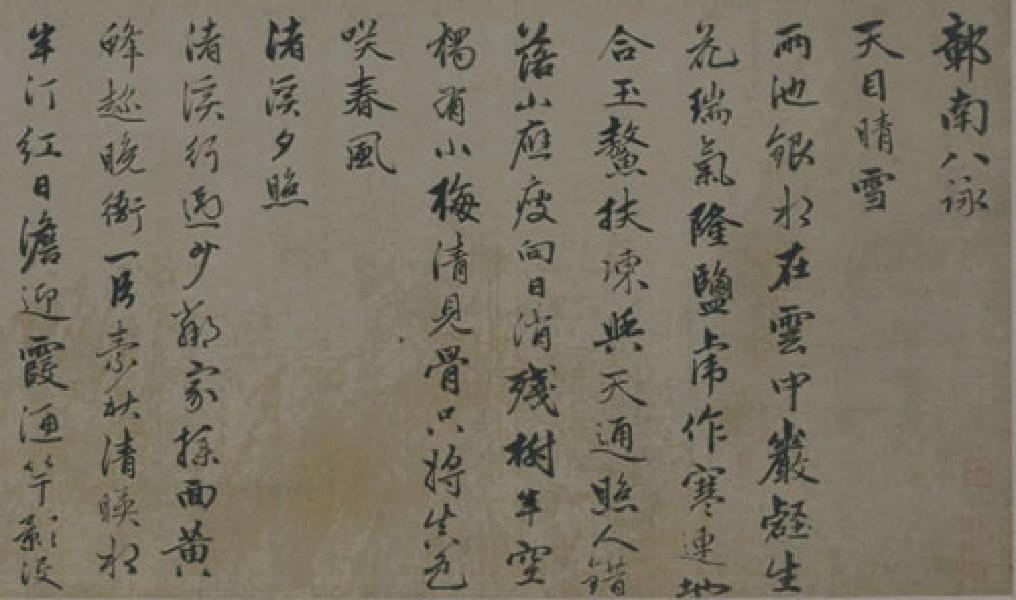 鄣南八詠
天目晴雪
兩池銀杉在雲中巖壑生
花瑞氣隆鹽虎作寒連地
合玉鰲扶凍與天通照人錯
落山應瘦向日消殘樹半空
獨有小梅清見骨只將生色
笑春風
渚溪夕照
渚溪行過少鄰家探面黃
蜂趁晚衙一片素秋清暎杉
半汀紅日澹迎霞漁竿影沒